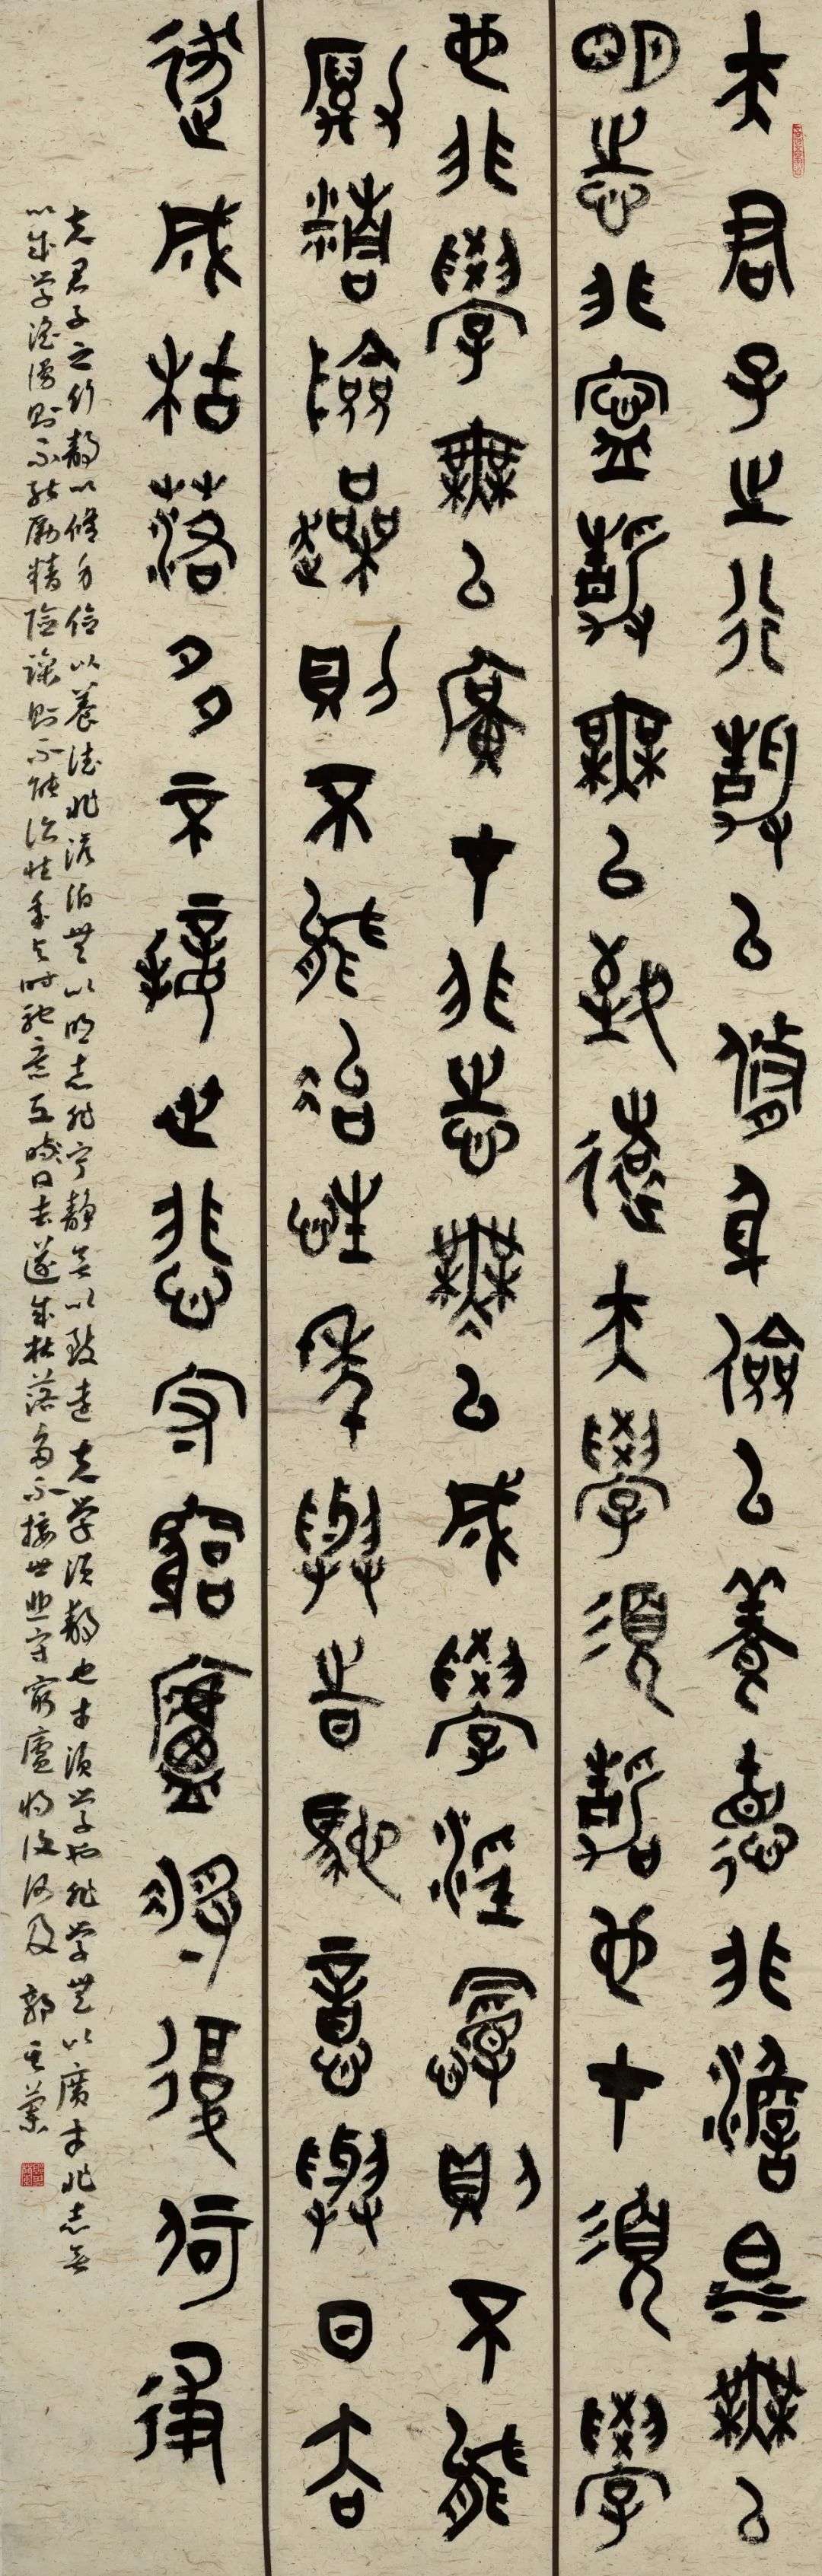 夫君子之行靜以修身儉以養德非澹泊無以
明志非寧靜無以致遠夫學須靜也才須學
也非學無以廣才非志無以成學淫慢則不能
勵精險躁則不能治性年與時馳意與日去
遂成枯落多不接世悲守窮廬將復何及
夫君子之行静以修身俭以养德非澹泊無以明志非宁静无以致远夫学须静也才须学也非学無以廣才非志无
以成学淫慢则不能励精险躁则不能治性年与时驰意与日去遂成枯落多不接世悲守窮廬将復何及 郭